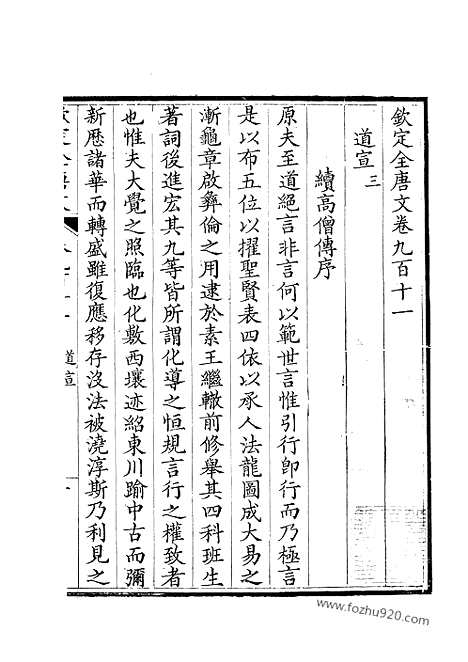 欽定全唐文卷九百十一
道宣三
續高僧傳序
原夫至道絕言非言何以範世言惟引行即行而乃極言
是以布五位以擢聖賢表四依以承人法龍圖成大易之
漸龜章啟彝倫之用逮於素王繼轍前修舉其四科班生
著詞後進宏其九等皆所謂化導之恒規言行之權致者
也惟夫大覺之照臨也化敷西壤迹紹東川踰中古而彌
新歷諸華而轉盛雖復應移存沒法被澆淳斯乃利見之
道宣
www.fozhu920.com